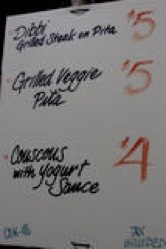 Dibbi
Grilled Steak on Pita $5
Grilled Veggie $5
Pita
Couscous $4
with Yogurt
Sauce
TAX
INCLUDED